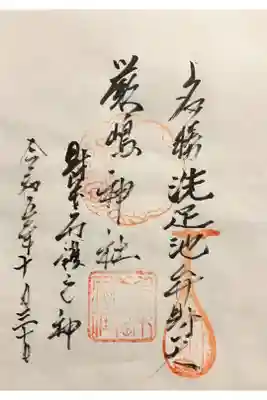 名勝洗足池弁財天
厳嶋神社
財宝万護之神
令和五年十月三十日